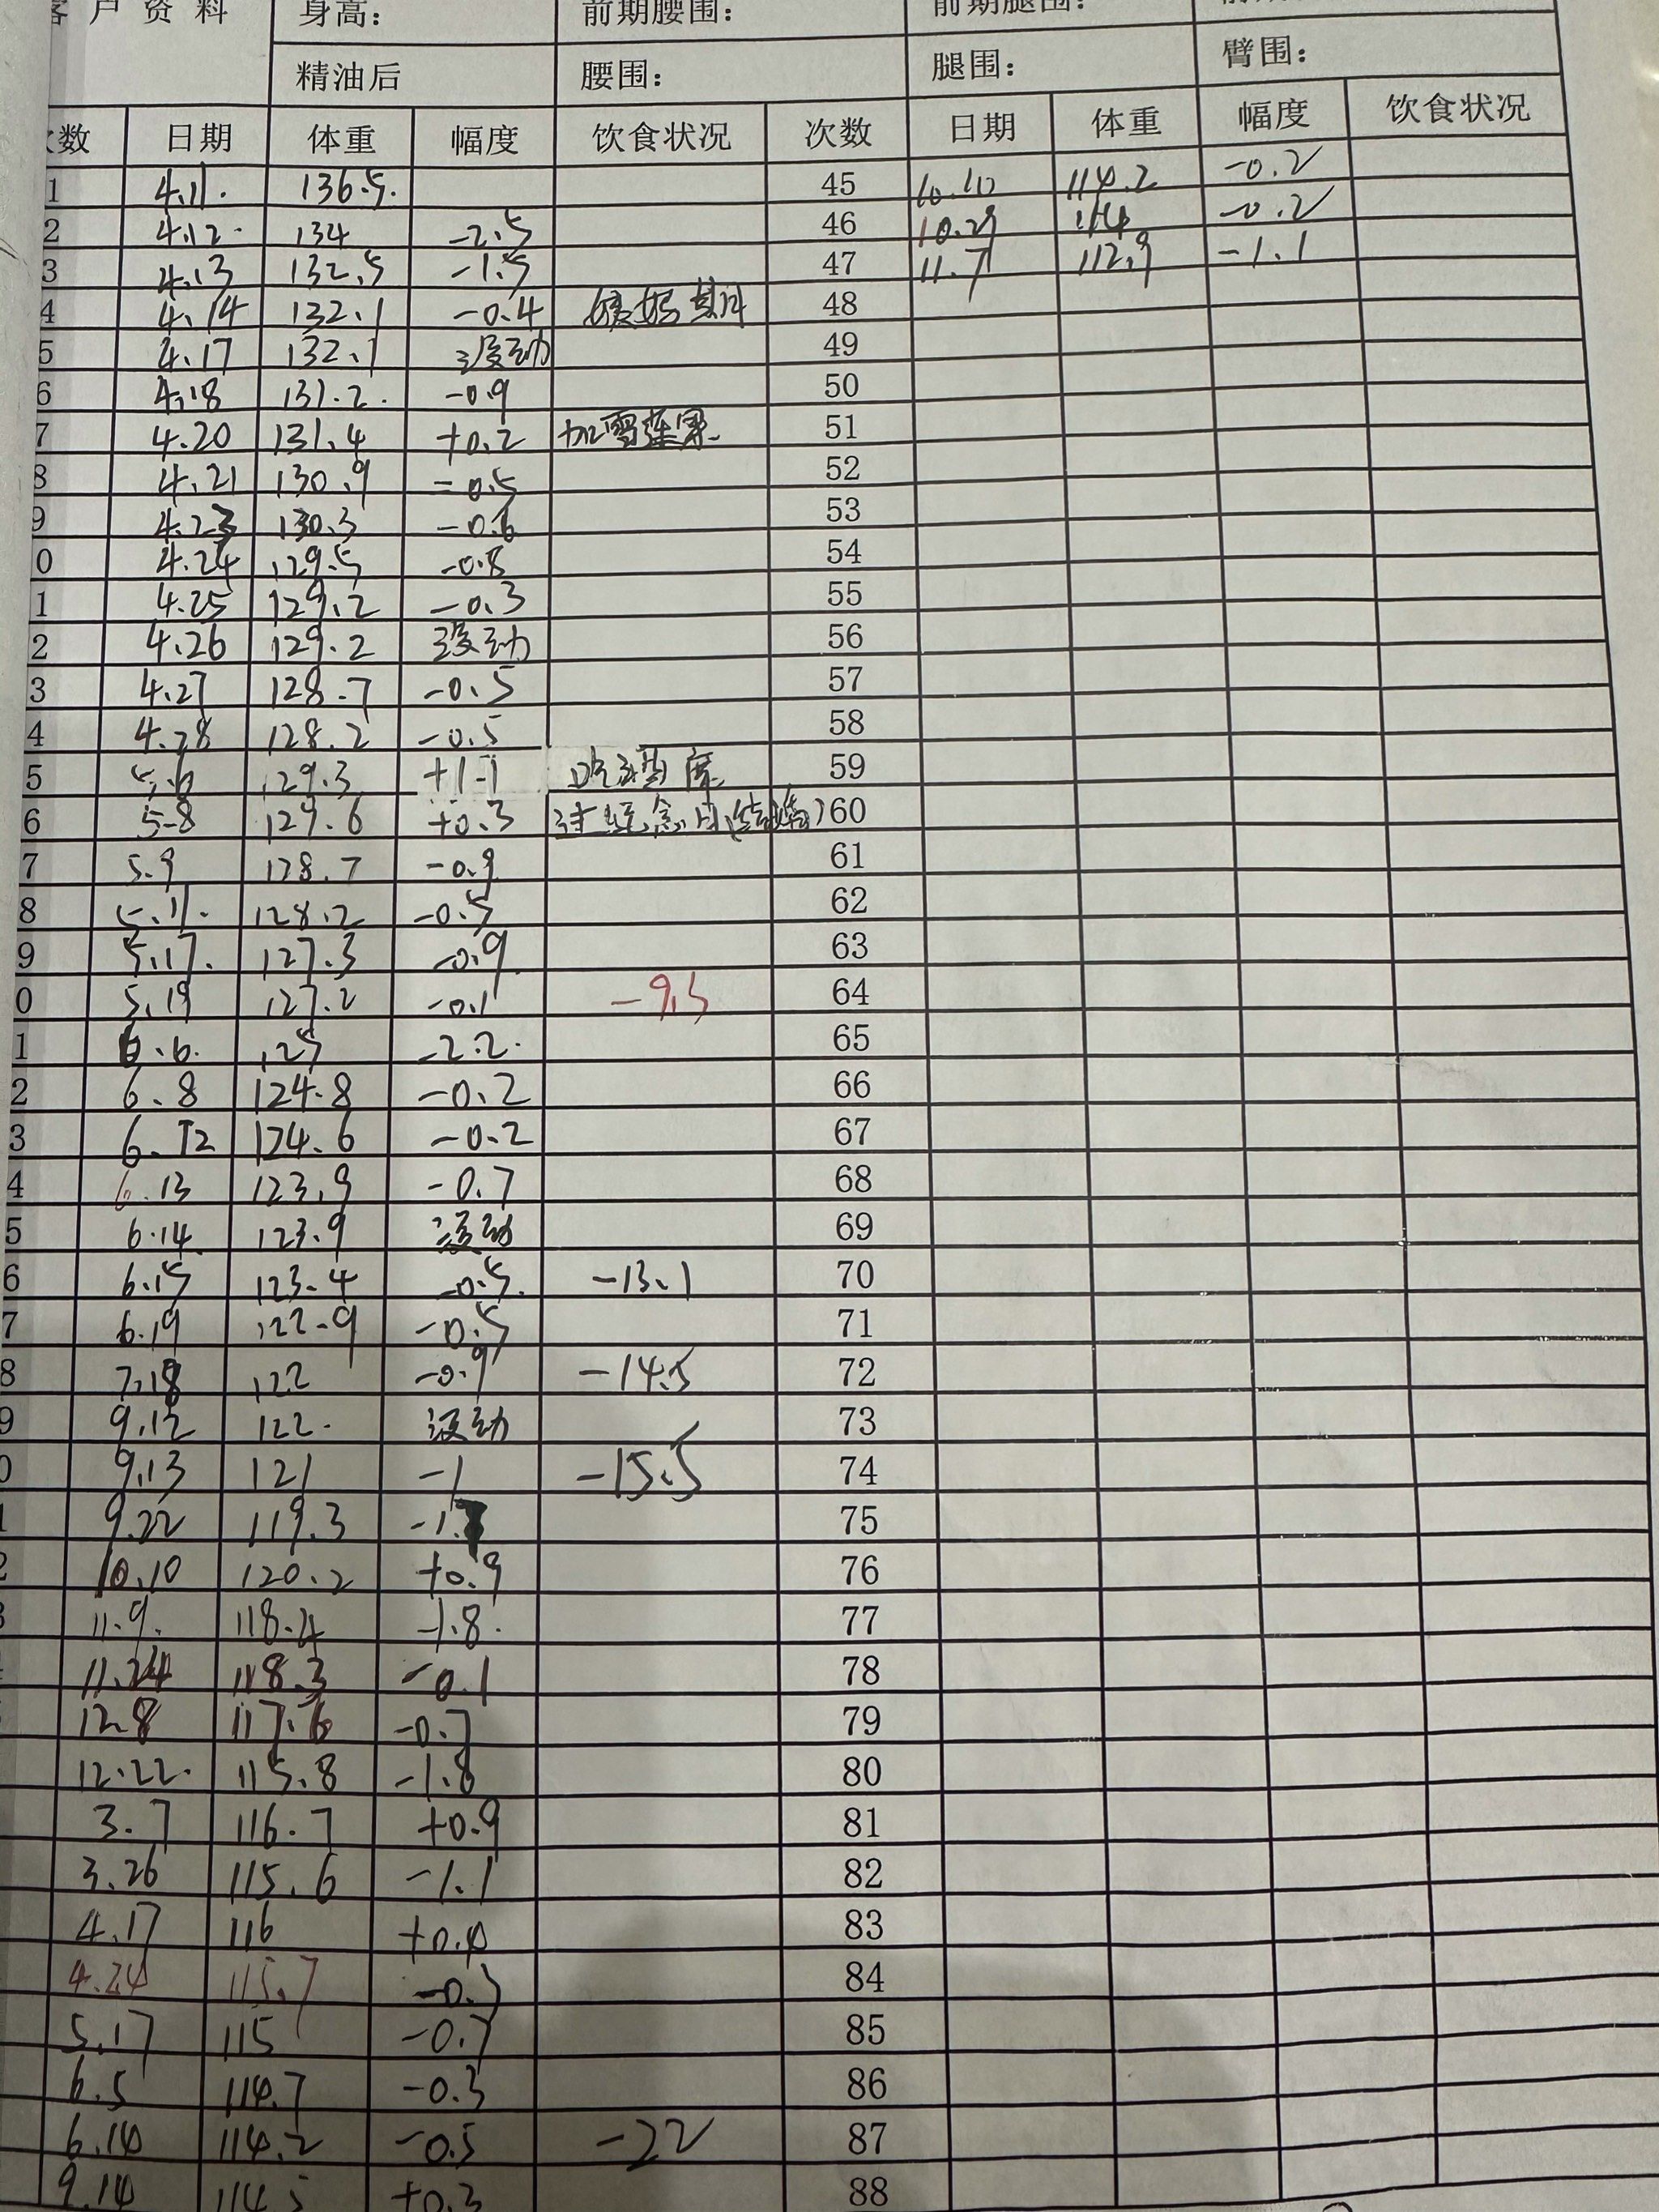 客户资料 身高： 前期腰围： 前期腿围：
精油后 腰围： 腿围： 臂围：
次数 日期 体重 幅度 饮食状况 次数 日期 体重 幅度 饮食状况
1 4.11. 136.5. 45 10.10 114.2 -0.2
2 4.12. 134 -2.5 46 10.29 114 -0.2
3 4.13 132.5 -1.5 47 11.7 112.9 -1.1
4 4.14 132.1 -0.4 姨妈期间 48
5 4.17 132.1 没动 49
6 4.18 131.2. -0.9 50
7 4.20 131.4 +0.2 加雪莲果 51
8 4.21 130.9 -0.5 52
9 4.23 130.3 -0.6 53
0 4.24 129.5 -0.8 54
1 4.25 129.2 -0.3 55
2 4.26 129.2 没动 56
3 4.27 128.7 -0.5 57
4 4.28 128.2 -0.5 58
5 5.6 129.3 +1.1 59
6 5-8 129.6 +0.3 60
7 5.9 128.7 -0.9 61
8 5.11. 128.2 -0.5 62
9 5.17. 127.3 -0.9 63
0 5.19 127.2 -0.1 -9.3 64
1 6.6. 125 -2.2. 65
2 6.8 124.8 -0.2 66
3 6.12 124.6 -0.2 67
4 6.13 123.9 -0.7 68
5 6.14 123.9 没动 69
6 6.15 123.4 -0.5. -13.1 70
7 6.19 122.9 -0.5 71
8 7.18 122 -0.9 -14.5 72
9 9.12 122. 没动 73
0 9.13 121 -1 -15.5 74
9.22 119.3 -1.7 75
10.10 120.2 +0.9 76
11.9. 118.4 -1.8. 77
11.24 118.3 -0.1 78
12.8 117.6 -0.7 79
12.22. 115.8 -1.8 80
3.7 116.7 +0.9 81
3.26 115.6 -1.1 82
4.17 116 +0.4 83
4.24 115.7 -0.3 84
5.17 115 -0.7 85
6.5 114.7 -0.3 86
6.14 114.2 -0.5 -22 87
9.14 114.5 +0.3 88